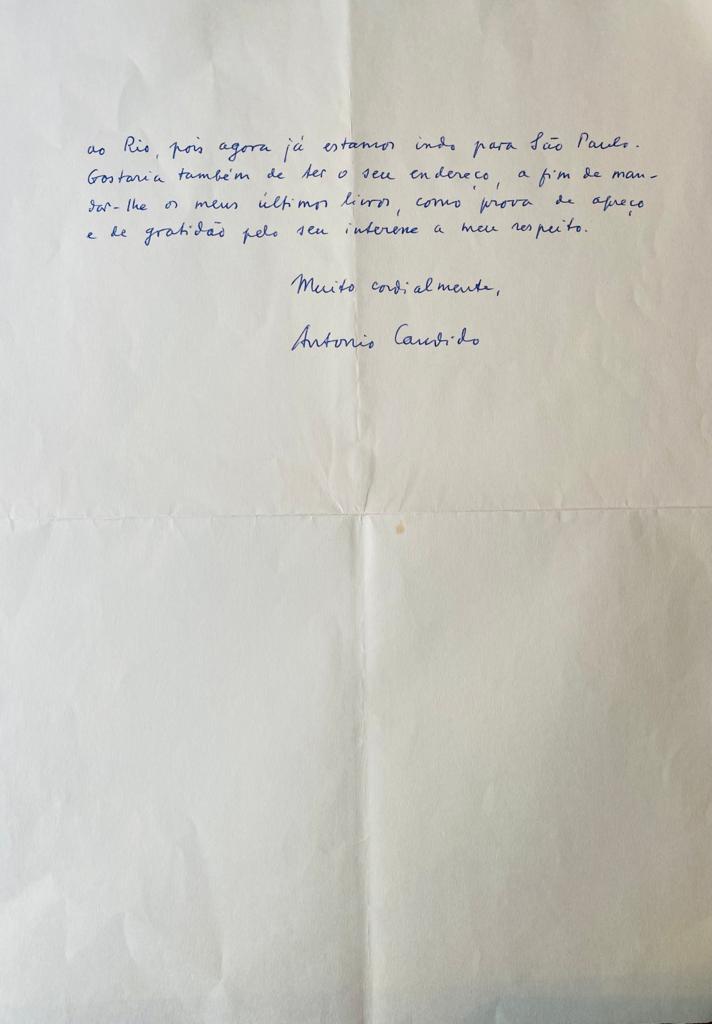 ao Rio, pois agora já estamos indo para São Paulo.
Gostaria também de ter o seu endereço, a fim de man-
dar-lhe os meus últimos livros, como prova de apreço
e de gratidão pelo seu interesse a meu respeito.
Muito cordialmente,
Antonio Candido